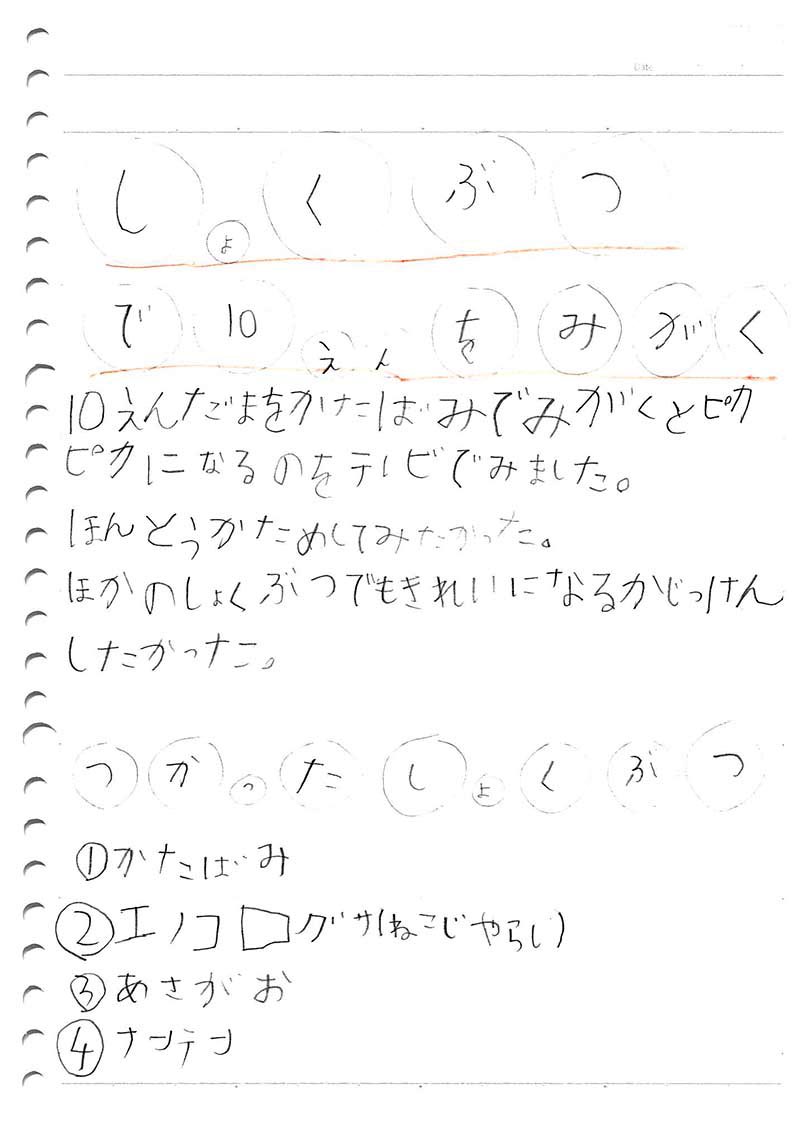 Date
しょくぶつ
で10えんをみがく
10えんだまをかたばみでみがくとピカ
ピカになるのをテレビでみました。
ほんとうかためしてみたかった。
ほかのしょくぶつでもきれいになるかじっけん
したかった。
つかったしょくぶつ
①かたばみ
②エノコログサ(ねこじゃらし)
③あさがお
④ナンテン